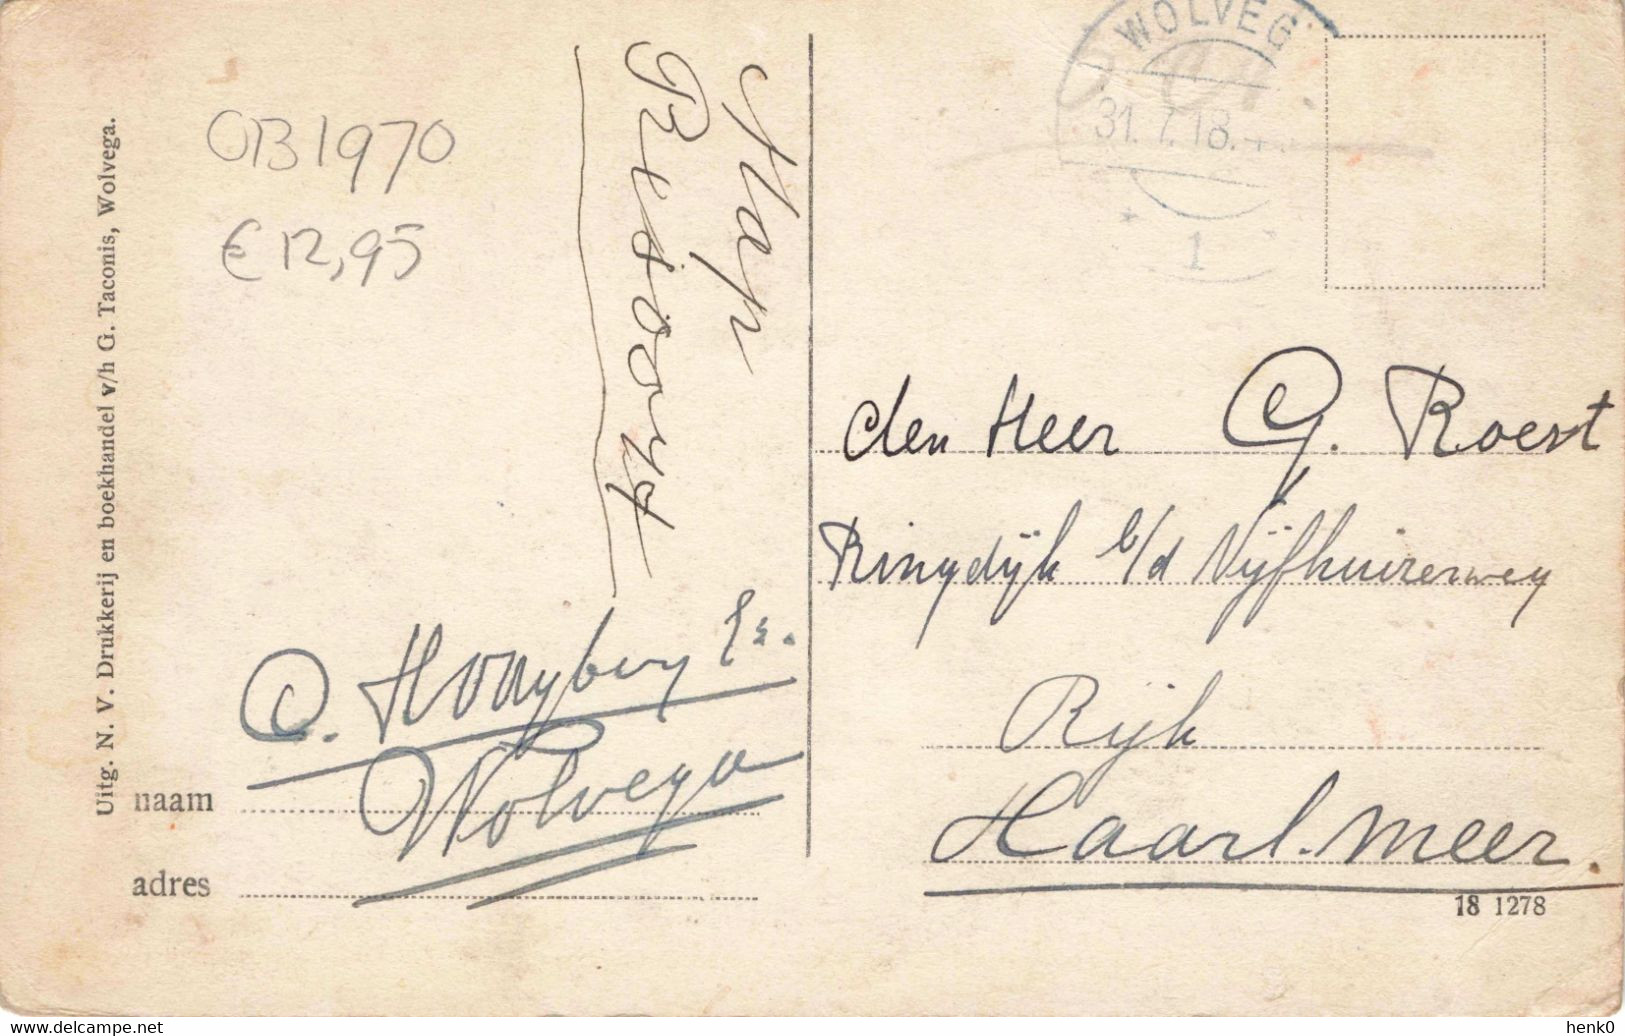 Uitg. N. V. Drukkerij en boekhandel v/h G. Taconis, Wolvega.
OB 1970
€ 12,95
WOLVEG
31.7.18.-4
1
den Heer G. Roest
Ringdijk b/d Vijfhuizerweg
Rijk
Haarl.meer.
Wolvega
naam
adres
18 1278
www.delcampe.net
henk0